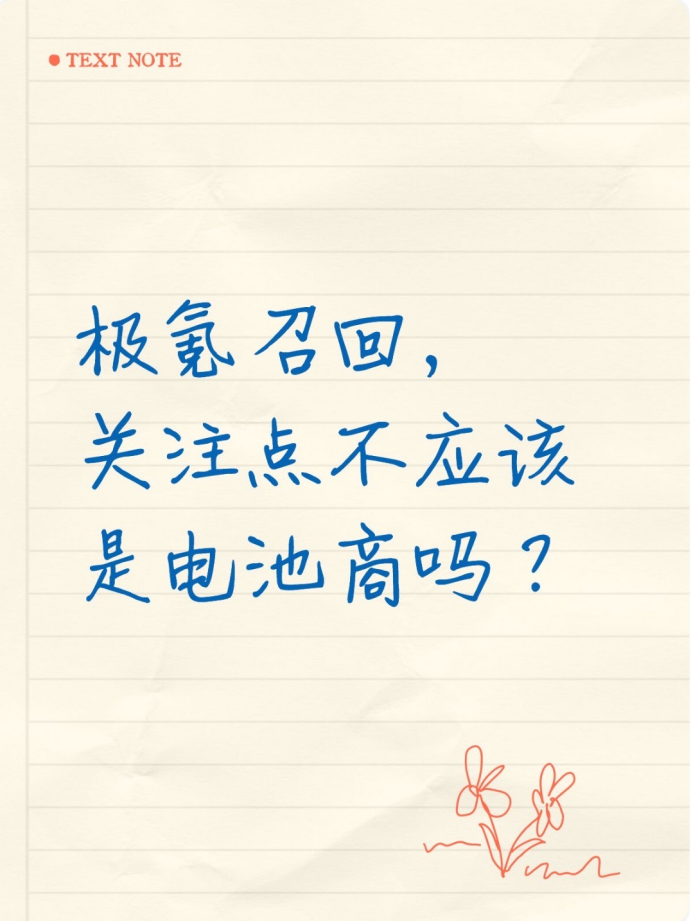 TEXT NOTE
极氪召回,
关注点不应该
是电池商吗?